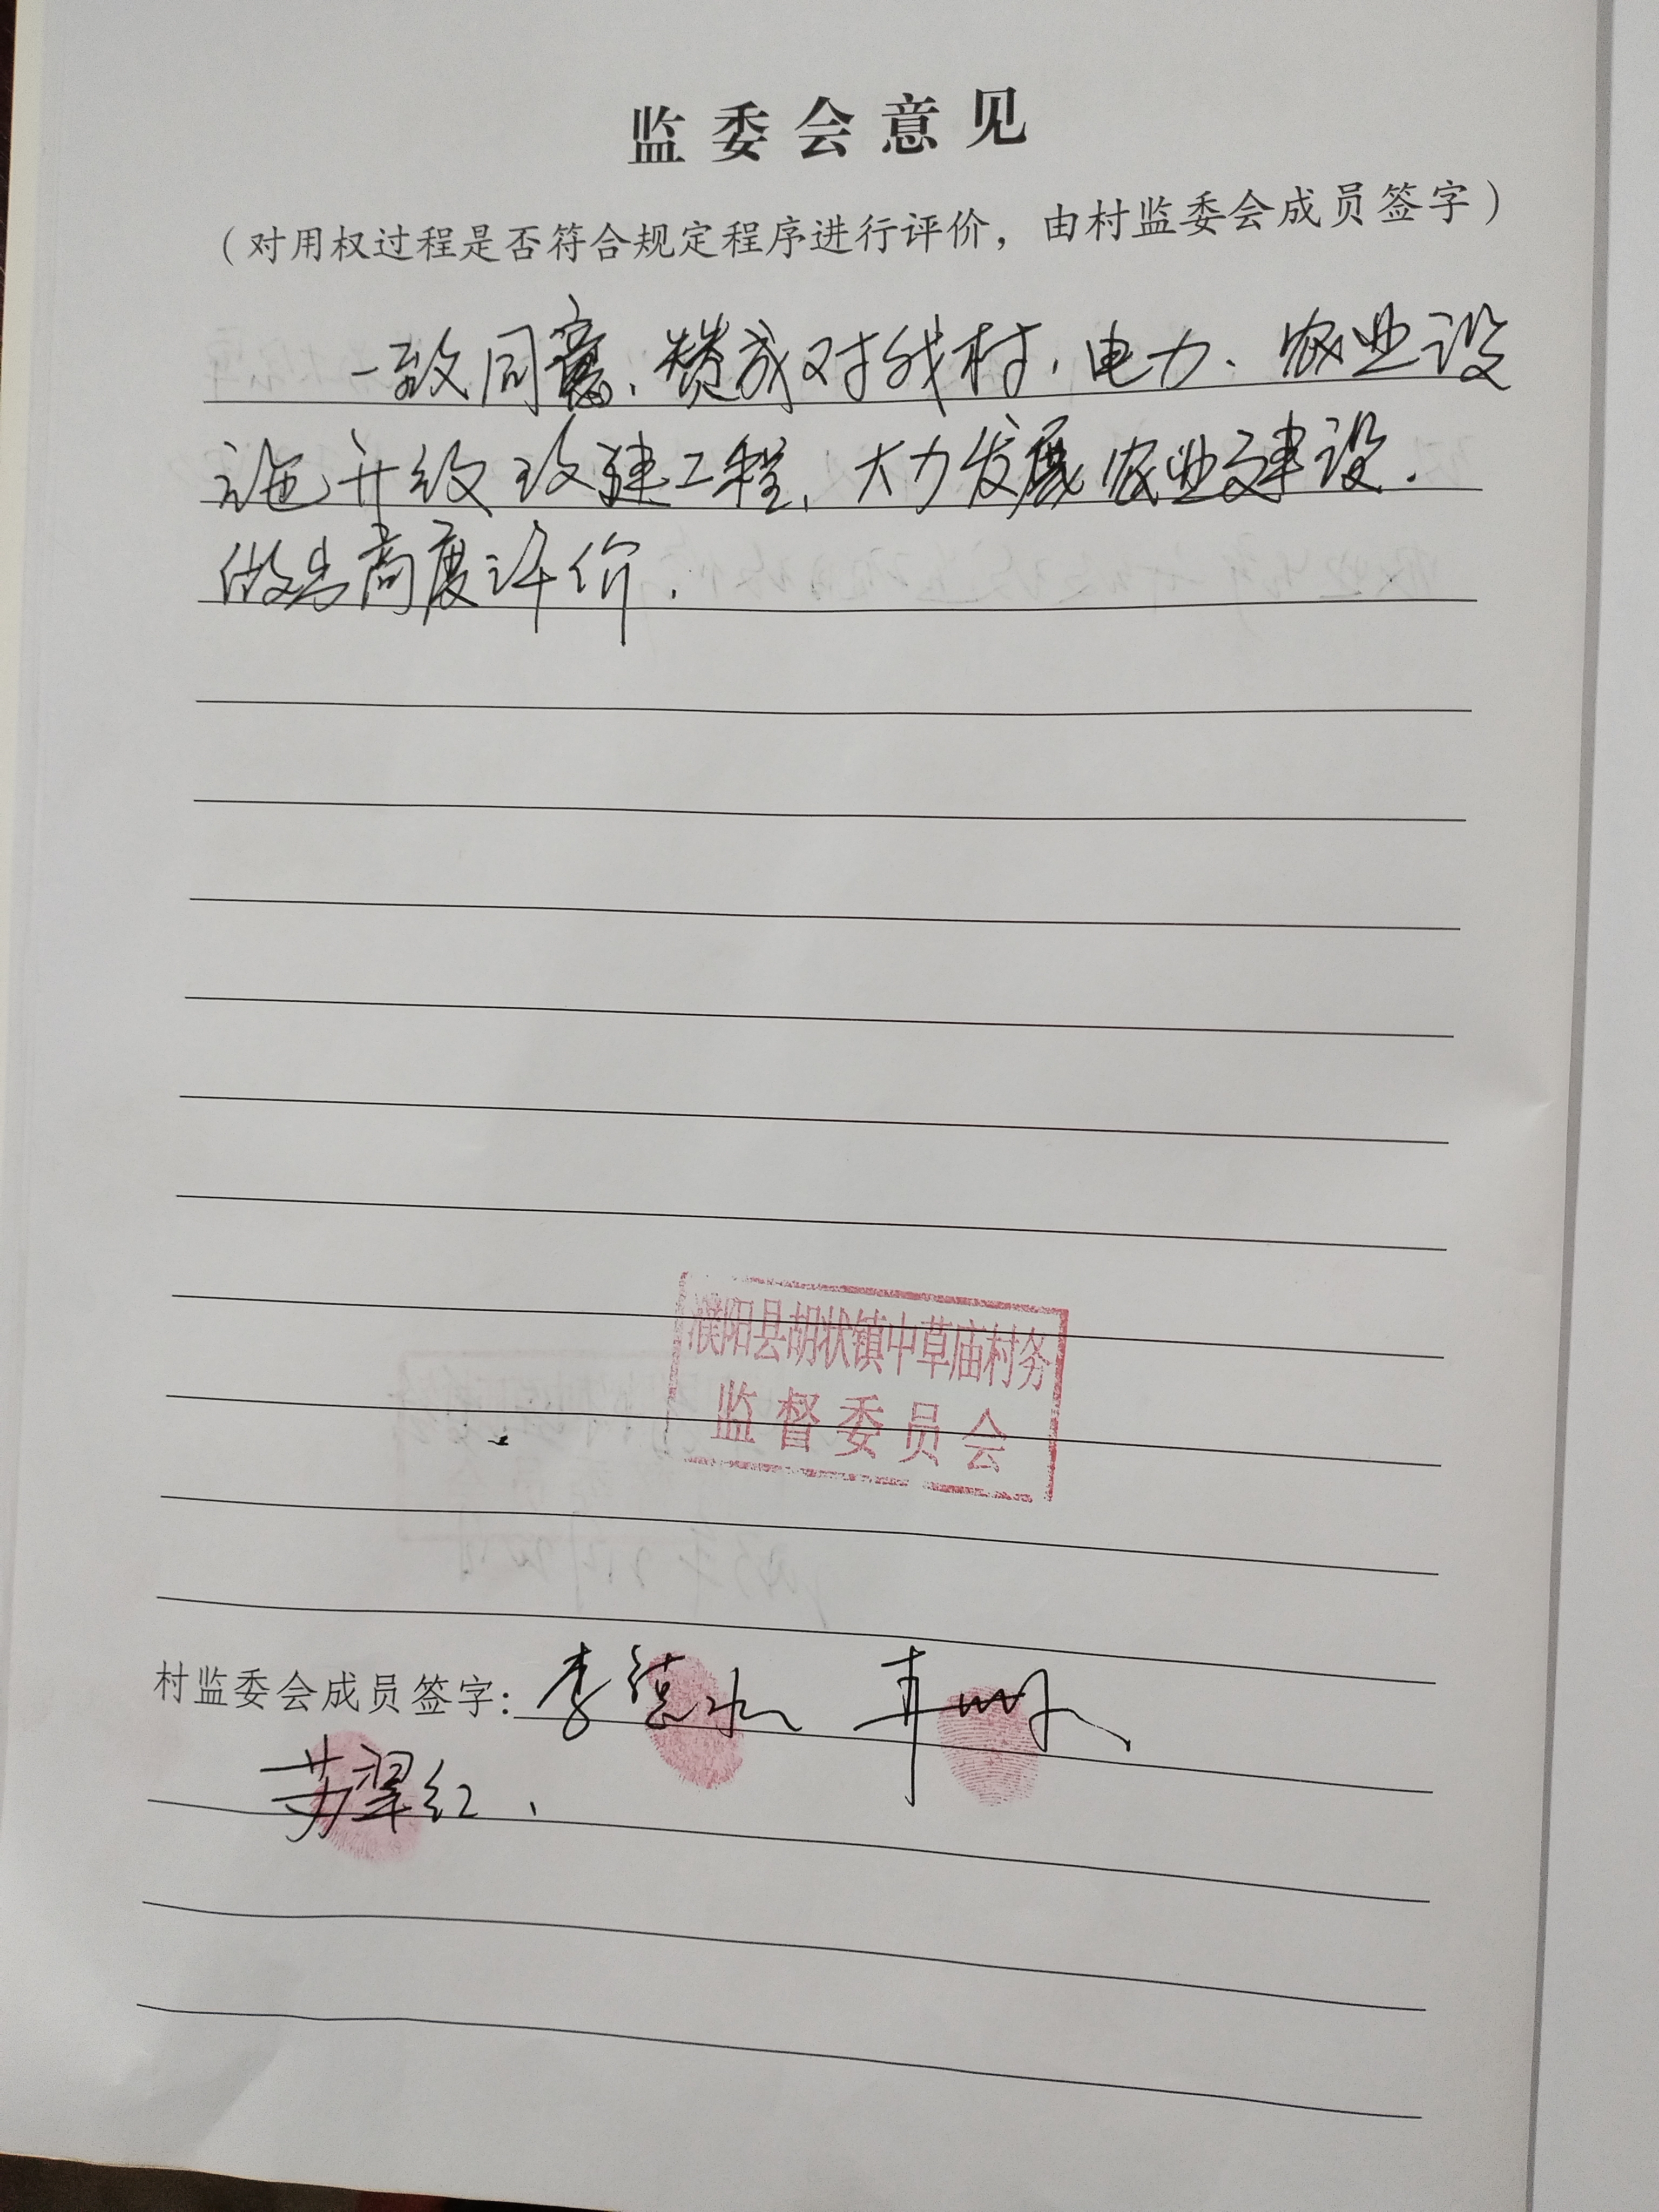 监委会意见
（对用权过程是否符合规定程序进行评价，由村监委会成员签字）
一致同意、赞成对我村、电力、农业设
施升级改建工程，大力发展农业建设.
做出高度评价.
濮阳县胡状镇中草庙村务
监督委员会
村监委会成员签字：李德水
苏翠红、